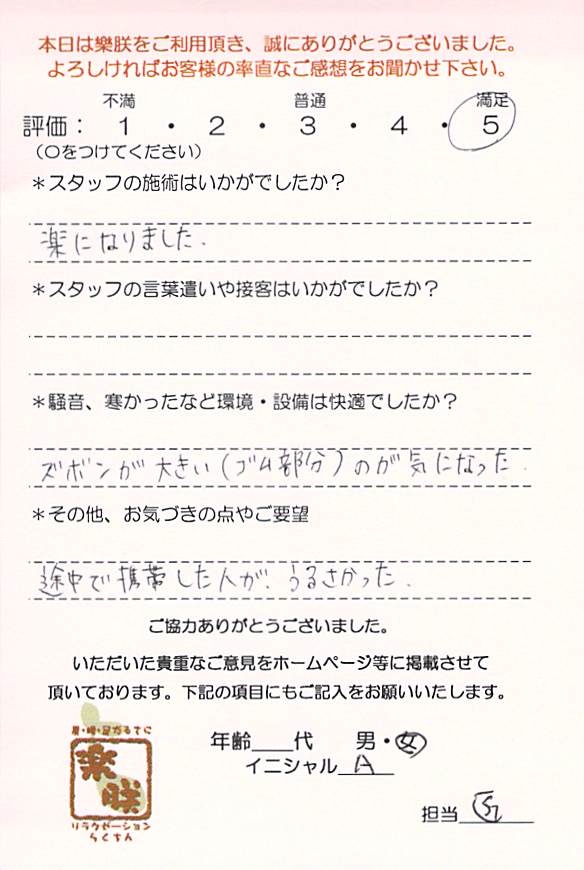 本日は樂朕をご利用頂き、誠にありがとうございました。
よろしければお客様の率直なご感想をお聞かせ下さい。
不満 普通 満足
評価： 1 ・ 2 ・ 3 ・ 4 ・ 5
（○をつけてください）
＊スタッフの施術はいかがでしたか？
楽になりました.
＊スタッフの言葉遣いや接客はいかがでしたか？
＊騒音、寒かったなど環境・設備は快適でしたか？
ズボンが大きい(ゴム部分)のが気になった.
＊その他、お気づきの点やご要望
途中で携帯した人が、うるさかった.
ご協力ありがとうございました。
いただいた貴重なご意見をホームページ等に掲載させて
頂いております。下記の項目にもご記入をお願いいたします。
年齢___代 男・女
イニシャル A
担当
樂朕
リラクゼーション
らくちん